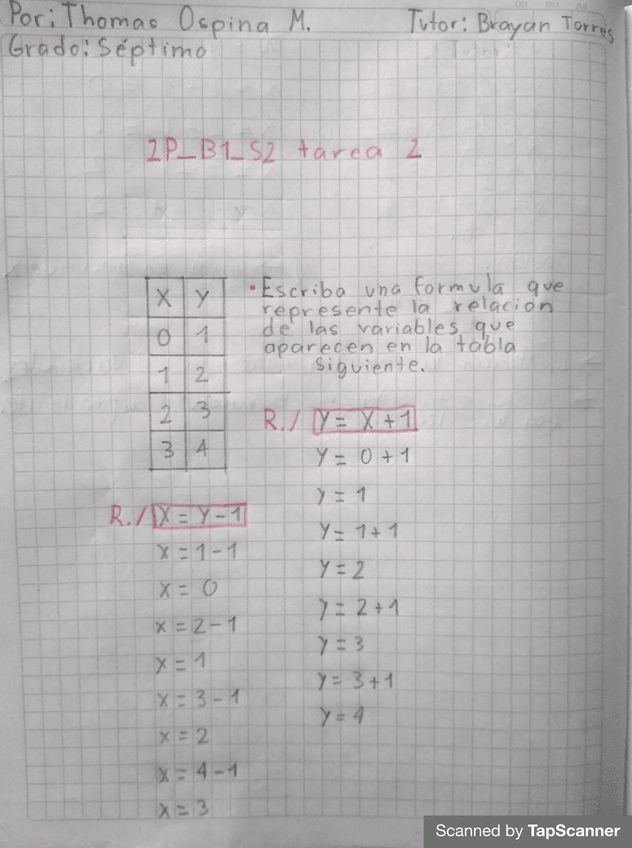 Por: Thomas Ospina M. Tutor: Brayan Torres
Grado: Séptimo
2P_B1_S2 tarea 2
X Y
0 1
1 2
2 3
3 4
• Escriba una formula que
represente la relacion
de las variables que
aparecen en la tabla
siguiente.
R./ Y = X + 1
Y = 0 + 1
Y = 1
Y = 1 + 1
Y = 2
Y = 2 + 1
Y = 3
Y = 3 + 1
Y = 4
R./ X = Y - 1
X = 1 - 1
X = 0
X = 2 - 1
X = 1
X = 3 - 1
X = 2
X = 4 - 1
X = 3
Scanned by TapScanner